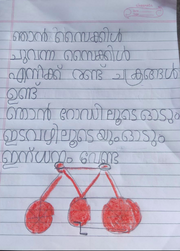 ഞാൻ സൈക്കിൾ
ചുവന്ന സൈക്കിൾ
എനിക്ക് രണ്ട് ചക്രങ്ങൾ
ഉണ്ട്
ഞാൻ റോഡിലൂടെ ഓടും
ഇടവഴിലൂടെയും ഓടും
ഇന്ധനം വേണ്ട